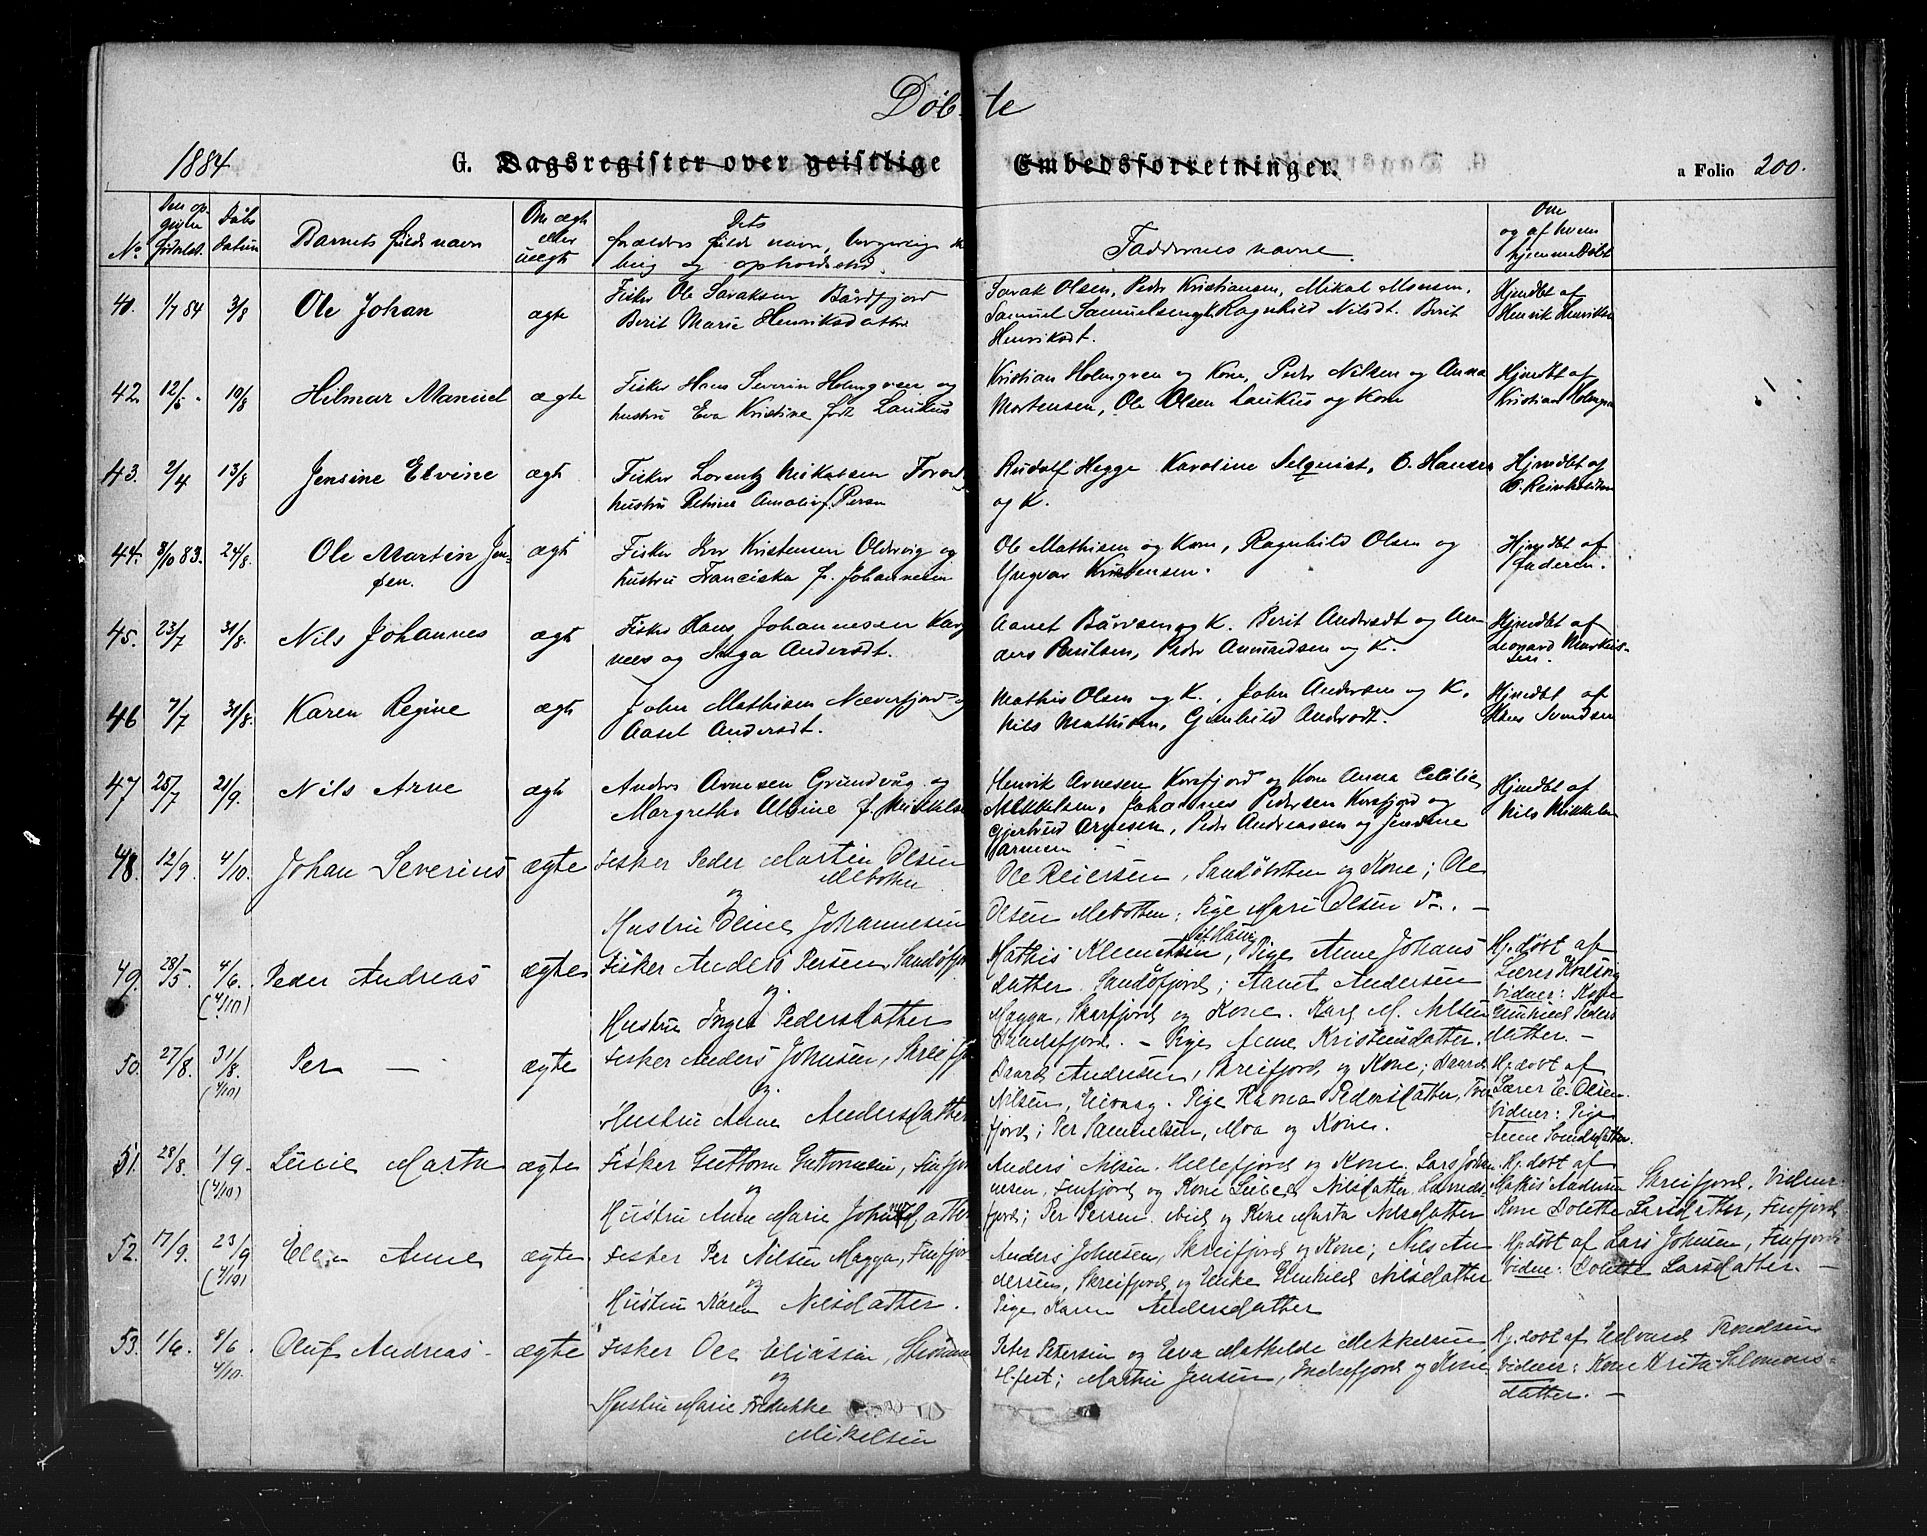 Døbte
1884
G. Dagsregister over geistlige Embedsforretninger. a Folio 200.
No
Den opgivne Fødselsd.
Døbs Datum
Barnets fulde navn
Om ægte eller uægte
Dets forældres fulde navn, og opholdssted.
Faddernes navne.
Om og af hvem hjemmedøbt
41. 1/7 84 3/8 Ole Johan ægte
Fisker Ole Isaksen Bårdfjord
Berit Marie Henriksdatter
Isak Olsen, Peder Kristiansen, Mikal Monsen,
Samuel Samuelsen, Ragnhild Nilsdt. Berit
Henriksdt.
Hjmdbt af
Henrik Henriksen
42. 12/6 10/8 Hilmar Manuel ægte
Fisker Hans Severin Holmgren og
hustru Eva Kristine født Laukus
Kristian Holmgren og Kone, Peder Nilsen og Anna
Mortensen, Ole Olsen Laukus og Kone
Hjmdbt af
Kristian Holmgren
43. 2/4 13/8 Jensine Elvine ægte
Fisker Lorentz Mikalsen
hustru Petrine Amalie f. Persen
Rudolf Hegge Karoline Selquist, O. Hansen
og K.
Hjmdbt af
O. Reinholdtsen
44. 3/10 83. 24/8. Ole Martin Jensen. ægte
Fisker Jens Kristensen Oldervig og
hustru Franciska f. Johannesen
Ole Mathisen og Kone, Ragnhild Olsen og
Yngvar Kristensen.
Hjmdbt af
faderen.
45. 23/7 31/8. Nils Johannes ægte
Fisker Hans Johannesen Kargenæs og Inga Andersdt.
og K. Berit Andersdt og Anders Berilsen, Peder Amundsen og K.
Hjmdbt af
Leonard Markussen.
46 7/7 31/8. Karen Regine ægte
John Mathisen Næverfjord og
Aaset Andersdt.
Mathis Olsen og K., John Andersen og K.
Nils Mathisen, Gunhild Andersdt.
Hjmdbt af
Hans Svendsen
47 25/7 21/9. Nils Arne ægte
Anders Arnesen Grundvåg og
Margrethe Albine f. Mikkelsen
Henrik Arnesen Korsfjord og Kone Anna Cecilie
Mikkelsen, Johannes Pedersen Korsfjord og
Gjertrud Arnesen, Peder Andreassen og Jensine
Hjmdbt af
Nils Mikkelsen
48. 12/9. 4/10. Johan Severius ægte
Fisker Peder Martin Olsen
Mebotten
og
Hustru Eline Johannesen
Ole Reiersen, Sandøbotten og Kone; Ole
Olsen Mebotten; Pige Marie Olsen do. —
49. 28/5. 4/6. (4/10) Peder Andreas ægte
Fisker Anders Persen, Sandøfjord
og
Hustru Inger Pedersdatter
Mathis Klemetsen, Pige Anne Johansdatter Sandøfjord; Aanet Andersen
Magga, Skarfjord og Kone. Karl M. Nilsen
— Pige Anne Kristensdatter.
Hj. døbt af
Lærer
Vidner: Kone
Gunhild Pedersdatter. —
50. 27/8. 31/8. (4/10) Per — ægte
Fisker Anders Johnsen, Skreifjord
og
Hustru Anne Andersdatter
Baard Andersen, Skreifjord og Kone; Baard
Nilsen, Eivaag. Pige Ravna Pedersdatter,
fjord; Per Samuelsen, Moa og Kone.
Hj. døbt af
Lærer E. Olsen
Vidner: Pige
Anne Svendsdatter.
51. 28/8. 1/9. (4/10) Lucie Marta ægte
Fisker Guttorm Guttormsen, Finfjord
og
Hustru Anne Marie Johnsdatter
Anders Nilsen. Hellefjord og Kone. Lars Johnnesen, Finfjord og Kone Nilsdatter.
fjord; Per Persen. og Kone Marta Nilsdatter
Hj. døbt af
Mathis Andersen Skreifjord. Vidner
Kone Dolette Larsdatter, Finfjord
52. 17/9. 23/9 (4/10) Ellen Anne ægte
Fisker Per Nilsen Magga, Finfjord
og
Hustru Karen Nilsdatter.
Anders Johnsen, Skreifjord og Kone; Nils Andersen, Skreifjord og Enke Gunhild Nilsdatter
Pige Karen Andersdatter
Hj. døbt af Lars Johnsen, Finfjord
Vidne: Dolette Larsdatter. —
53. 1/6. 8/6 4/10. Oluf Andreas. ægte
Fisker Ole Eliassen,
og
Hustru Marie Fredrikke
Mikelsen
Peter Petersen og Eva Mathilde Mikkelsen
H.fest; Martin Jensen, Indrefjord og Kone
Hj. døbt af Edvard Trondsen
Vidner: Kone Krita Salomonsdatter. —